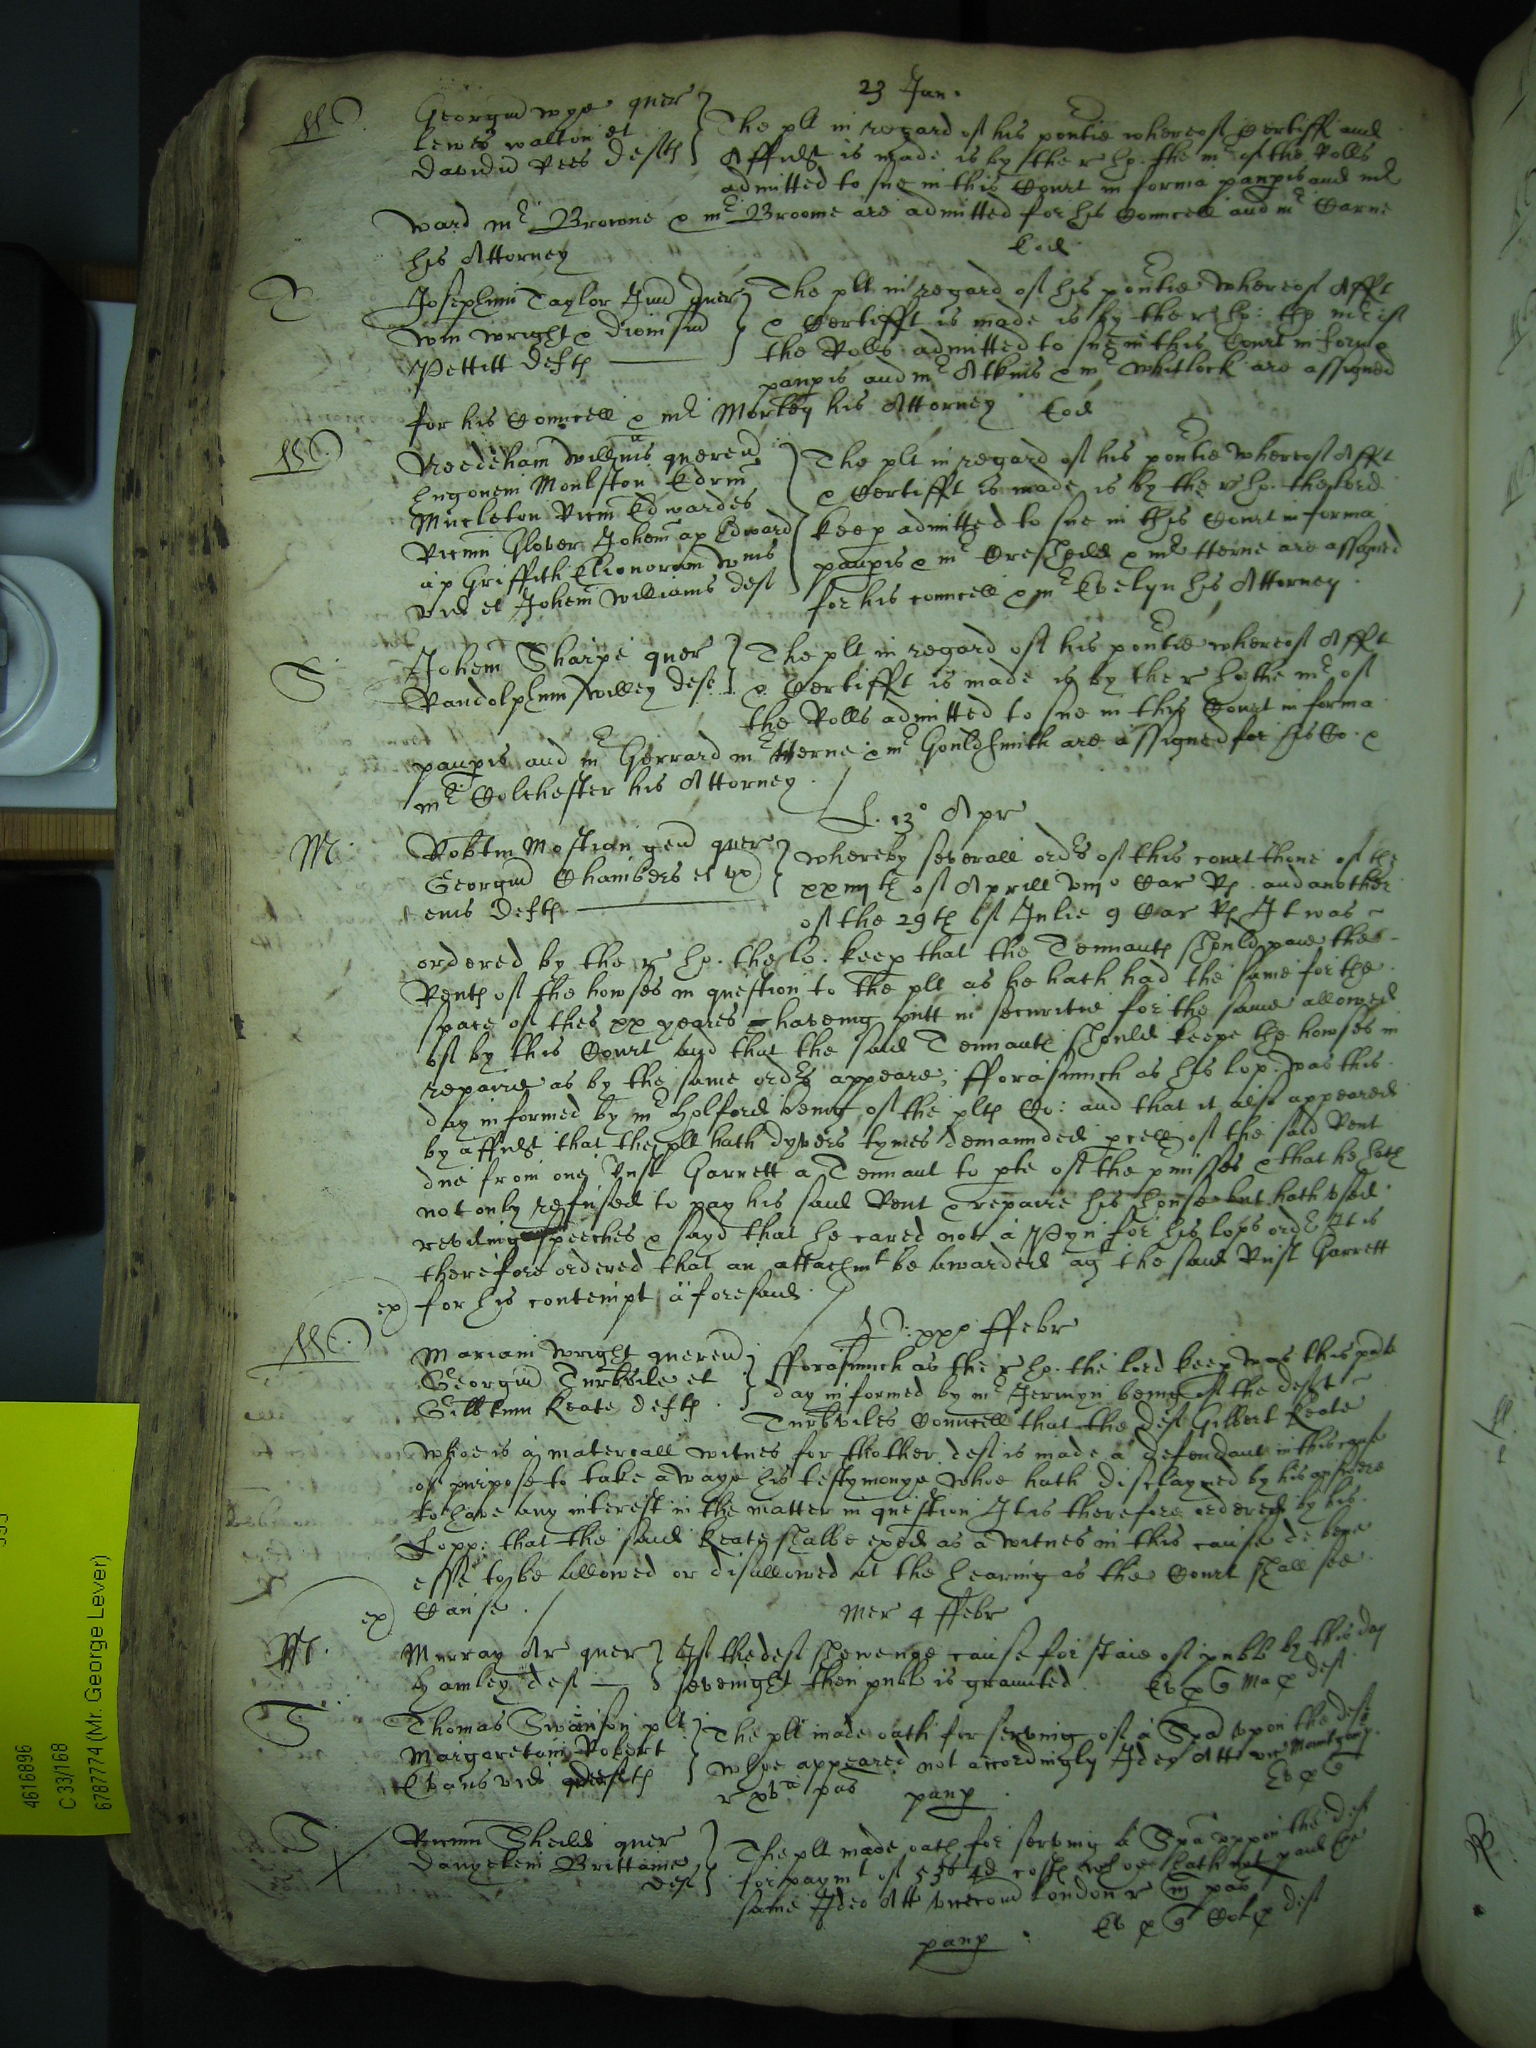 23 Jan.
W.
Georgiu wye quer
Lewes walton et
Davidu Rees deftes
The plt in regard of his povtie whereof Certiff and
Affidt is made is by the r ho. the mr of the Rolls
admitted to sue in this Court in forma paupis and mr
Ward mr Browne & mr Broome are admitted for his Councell and mr Carne
his Attorney
Eod
T
Josephum Taylor Jun quer
Wm Wright &
Pettitt deftes
The plt in regard of his povtie whereof Afft
& Certifft is made is by the r ho: the mr of
the Rolls admitted to sue in this Court in forma
paupis and mr Atkins & mr Whitlock are assigned
for his Councell & mr Morley his Attorney
Eod
W.
Needeham Willms querend
Hugonem Monkston Edrm
Muckleton Ricm Edwardes
Ricum Glover Johem ap Edward
ap Griffith Elionoram Wms
vid et Johem Williams def
The plt in regard of his povtie whereof Afft
& Certifft is made is by the r ho. the lord
keep admitted to sue in this Court in forma
paupis & mr Cresheld & mr Herne are assigned
for his councell & mr Evelyn his Attorney.
S
Johem Sharpe quer
Randolphum Willey def
The plt in regard of his povtie whereof Afft
& Certifft is made is by the r ho. the mr of
the Rolls admitted to sue in this Court in forma
paupis and mr Gerrard mr Herne & mr Gouldsmith are assigned for his Co. &
mr Colchester his Attorney.
L. 13o Apr
M.
Robtm Mostian gen quer
Georgiu Chambers et ux
eius deftes
whereby severall ordrs of this court thone of the
xxiiijth of Aprill viijo Car Rs. and another
of the 29th of Julie 9 Car Rs It was
ordered by the r ho. the lo. keep that the Tennants should paie the
Rents of the howses in question to the plt as he hath had the same for the
space of thes xx yeares haveing putt in securitie for the same allowed
of by this Court and that the said Tennants should keepe the howses in
repaire as by the same ordrs appeare, fforasmuch as his lop. was this
day informed by mr Holford being of the plts Co: and that it also appeared
by affidt that the plt hath dyvers tymes demaunded pcell of the said Rent
due from one Garrett a Tennant to pte of the pmisses & that he hath
not only refused to pay his said Rent & repaire his house but hath used
reviling speeches & sayd that he cared not a Pyn for his lops ordr It is
therefore ordered that an attachmt be awarded agt the said Garrett
for his contempt aforesaid.
ex
W.
Mariam Wright querend
Georgiu Turbvile et
Gilbtum Keate deftes.
ffebr
fforasmuch as the r ho. the lord keep was this pnte
day informed by mr Jermyn being of the deft
Turbviles Councell that the def Gilbert Keate
whoe is a matereall witnes for thother def is made a defendant in this cause
of purpose to take awaye his testymonye whoe hath disclaymed by his answere
to have any interest in the matter in question It is therefore ordered by his
Lopp: that the said Keate shalbe exed as a witnes in this cause de bene
esse to be allowed or disallowed at the hearing as the Court shall see
Cause.
ex
Mer 4 ffebr
M.
Murray Ar quer
Hamley def
If the def shewenge cause for staie of publ by this day
sevenight then publ is graunted.
Ev p
def
T
Thomas Swanson plt
Margaretam Robert
Evans vid deftes
The plt made oath for serving of a Spa upon the def
whoe appeared not accordingly Ideo Att
pas
paup
S
Ricum Sheild quer
Brittaine
def
The plt made oath for serving a Spa uppon the def
for paymt of 53s 4d costs whoe hath not paid the
same Ideo Att vicecom London
pas
Ev p
def
paup
4616896
C 33/168
6787774 (Mr. George Lever)